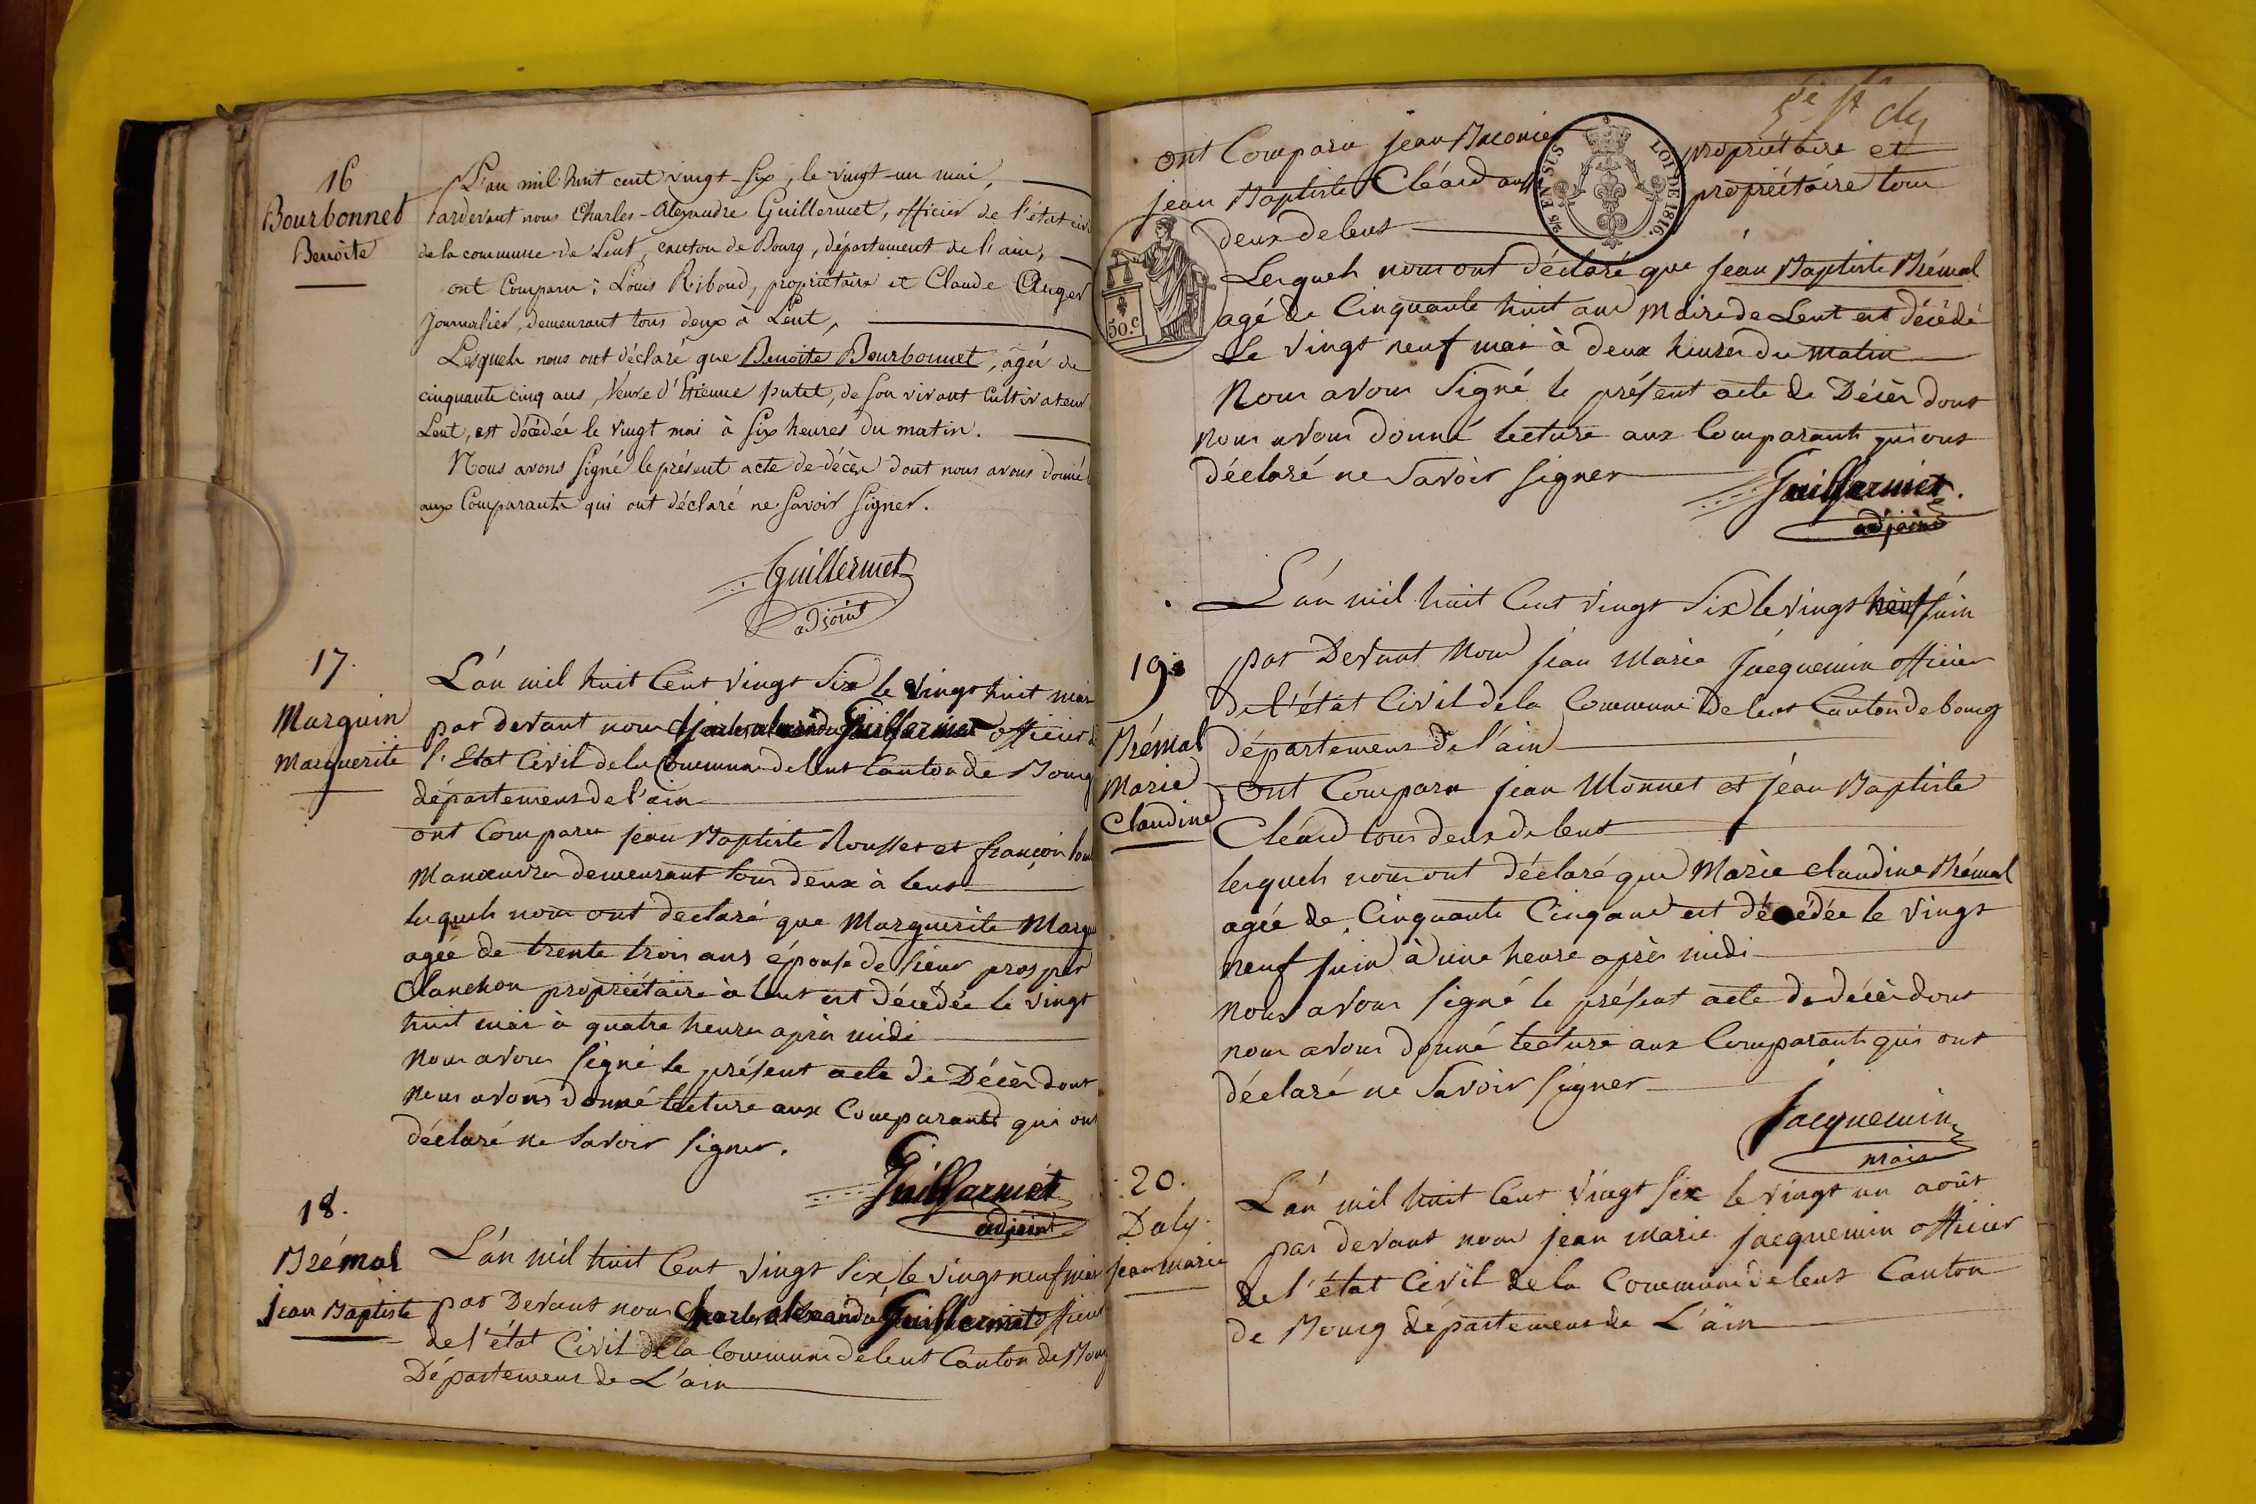 16
Bourbonnet
Benoite
L'an mil huit cent vingt-six, le vingt-un mai,
Pardevant nous Charles-Alexandre Guillermet, officier de l'état civ
de la commune de Lent, canton de Bourg, département de l'ain,
ont Comparu : Louis Riboud, propriétaire et Claude Auger
journalier, demeurant tous deux à Lent,
Lesquels nous ont déclaré que Benoite Bourbonnet, agée de
cinquante cinq ans, Veuve d'Etienne putet, de son vivant Cultivateur
Lent, est décédée le vingt mai à Six heures du matin.
Nous avons signé le présent acte de décès dont nous avons donné
aux Comparants qui ont déclaré ne savoir signer.
Guillermet
adjoint
17.
Marguin
Marguerite
L'án mil huit Cent vingt Six le vingt huit mai
par devant nous Charles alexandre Guillermet officier d
l'Etat Civil de la Commune de lent Canton de Bourg
département de l'ain
ont Comparu jean Baptiste Rousset et françois
Manœuvres demeurant tous deux à lent
lesquels nous ont declaré que Marguerite Margu
agée de trente trois ans épouse de sieur prosper
Clanchon propriétaire à lent est décédée le vingt
huit mai à quatre heures après midi
Nous avons signé le présent acte de Décès dont
Nous avons donné lecture aux Comparants qui ont
déclaré ne Savoir signer.
Guillermet
adjoint
18.
Brémal
jean Baptiste
L'án mil huit Cent vingt Six le vingt neuf mai
par Devant nous Charles alexandre Guillermet officier
de l'état Civil de la Commune de lent Canton de Bourg
Département de L'ain
ont Comparu jean propriétaire et
jean Baptiste Cléard propriétaire tous
deux de lent
2/5 EN SUS LOI DE 1816.
50.c
Lesquels nous ont déclaré que jéan Baptiste Brémal
agé de Cinquante huit ans Maire de Lent est décédé
Le vingt neuf mai à deux heures du matin
Nous avons signé le présent acte de Décès dont
nous avons donné lecture aux Comparants qui ont
déclaré ne Savoir signer
Guillermet.
adjoint
19.
Brémal
Marie
Claudine
L'án mil huit Cent vingt Six le vingt neuf juin
par Devant Nous jean Marie Jacquemin officier
de l'état Civil de la Commune de lent Canton de bourg
département de l'ain
ont Comparu jean Monnet et jéan Baptiste
Cléard tous deux de lent
lesquels nous ont déclaré que Marie claudine Brémal
agée de Cinquante Cinq ans est décédée le vingt
neuf juin à une heure après midi
Nous avons signé le présent acte de décès dont
nous avons donné lecture aux Comparants qui ont
déclaré ne Savoir signer
Jacquemin
maire
20.
Daly
jean marie
L'án mil huit Cent vingt six le vingt un août
par devant nous jean Marie jacquemin officier
de l'état Civil de la Commune de lent Canton
de Bourg département de L'ain